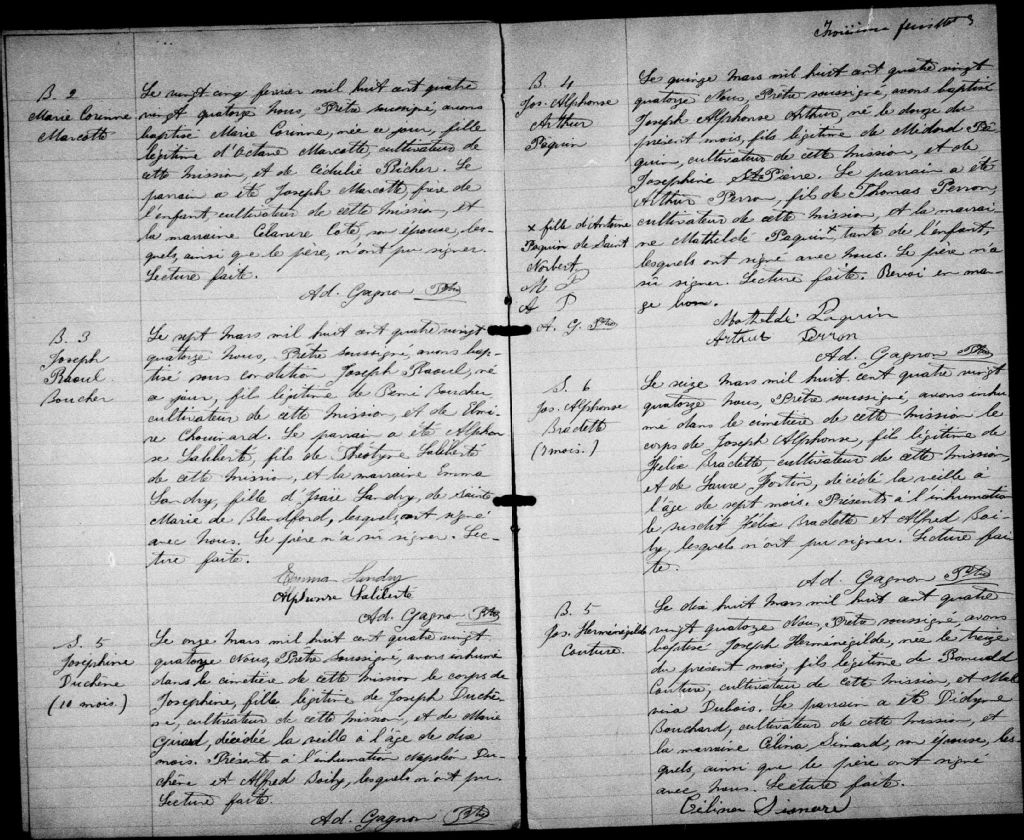 B. 2
Marie Corinne
Marcotte
Le vingt cinq fevrier mil huit cent quatre
vingt quatorze Nous, Prêtre soussigné, avons
baptisé Marie Corinne, née ce jour, fille
légitime d'Octave Marcotte, cultivateur de
cette mission, et de Cédulie Richer. Le
parrain a été Joseph Marcotte frère de
l'enfant, cultivateur de cette mission, et
la marraine Côté, son épouse, les-
quels, ainsi que le père, n'ont pu signer.
Lecture faite.
Ad. Gagnon Ptre
B. 3
Joseph
Raoul
Boucher
Le sept Mars mil huit cent quatre vingt
quatorze Nous, Prêtre soussigné, avons bap-
tisé sous condition Joseph Raoul, né
ce jour, fils légitime de Rémi Boucher
cultivateur de cette mission, et de Elmi-
re Chouinard. Le parrain a été Alphon
se Laliberté, fils de Laliberté
de cette mission, et la marraine Emma
Landry, fille d'Isaie Landry, de Sainte
Marie de Blandford, lesquels ont signé
avec Nous. Le père n'a su signer. Lec-
ture faite.
Emma Landry
Alphonse Laliberté
Ad. Gagnon Ptre
S. 5
Joséphine
Duchène
(10 mois.)
Le onze Mars mil huit cent quatre vingt
quatorze Nous, Prêtre soussigné, avons inhumé
dans le cimetère de cette mission le corps de
Joséphine, fille légitime de Joseph Duchè-
ne, cultivateur de cette mission, et de Marie
Girard, décédée la veille à l'âge de dix
mois. Présents à l'inhumation Napoléon Du-
chène et Alfred Boily, lesquels n'ont pu.
Lecture faite.
Ad. Gagnon Ptre
Troisième feuillet 3
B. 4
Jos. Alphonse
Arthur
Paquin
x fille d'Antoine
Paquin de Saint
Norbert
M P
A P
A. G. Ptre
Le quinze Mars mil huit cent quatre vingt
quatorze Nous, Prêtre soussigné, avons baptisé
Joseph Alphonse Arthur, né le douze du
présent mois, fils légitime de Médord Pa-
quin, cultivateur de cette mission, et de
Josephine St Pierre. Le parrain a été
Arthur Perron, fils de Thomas Perron,
cultivateur de cette mission, et la marrai-
ne Mathilde Paquin x, tante de l'enfant,
lesquels ont signé avec Nous. Le père n'a
su signer. Lecture faite. Renvoi en mar-
ge bon.
Mathilde Paquin
Arthur Perron
Ad. Gagnon Ptre
S. 6
Jos. Alphonse
Bradette
(7 mois.)
Le seize Mars mil huit cent quatre vingt
quatorze Nous, Prêtre soussigné, avons inhu-
mé dans le cimetière de cette mission le
corps de Joseph Alphonse, fils légitime de
Félix Bradette cultivateur de cette mission,
et de Laure Fortin, décédé la veille à
l'âge de sept mois. Présents à l'inhumation
le susdit Félix Bradette et Alfred Boi-
ly, lesquels n'ont pu signer. Lecture fai-
te.
Ad. Gagnon Ptre
B. 5
Jos. Herménégilde
Couture.
Le dix huit Mars mil huit cent quatre
vingt quatorze Nous, Prêtre soussigné, avons
baptisé Joseph Herménégilde, née le treize
du présent mois, fils légitime de Romuald
Couture, cultivateur de cette mission, et Mal-
vina Dubois. Le parrain a été Didyme
Bouchard, cultivateur de cette mission, et
la marraine Célina Simard, son épouse, les-
quels, ainsi que le père ont signé
avec Nous. Lecture faite.
Célina Simard